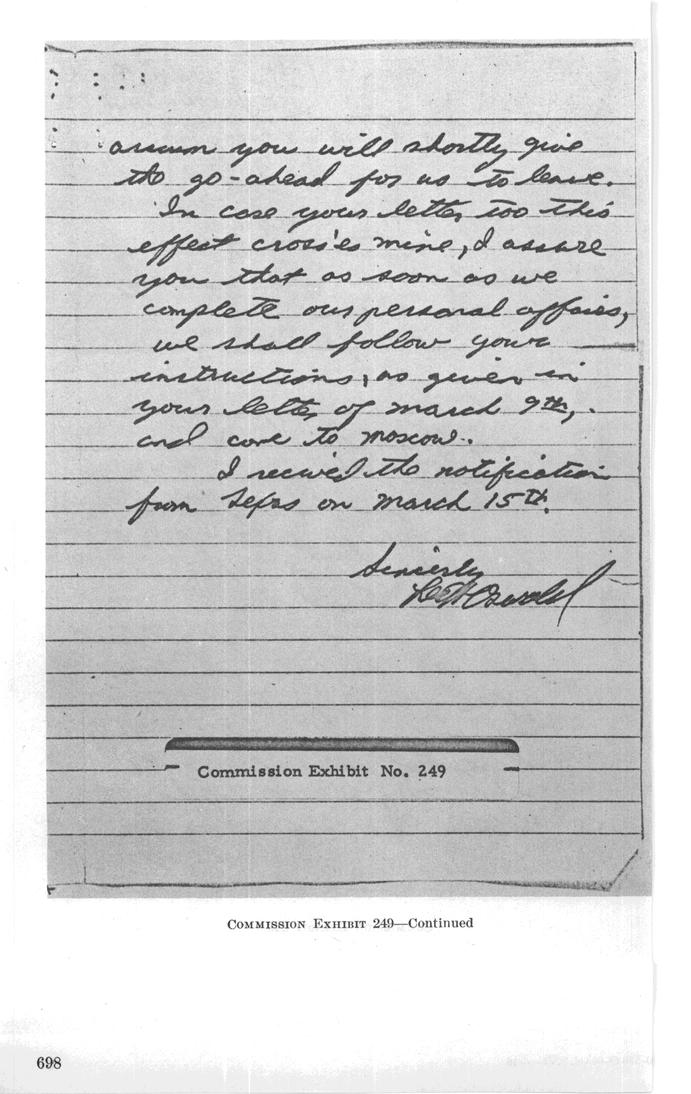 assum you will shortly give
the go-ahead for us to leave.
In case your letter too this
effect cross'es mine, I assure
you that as soon as we
complete our personal affairs,
we shall follow your
instructions, as given in
your letter of march 9th,
and come to moscow.
I recived the notification
from Texas on March 15th.
Sincerely
Lee H Oswald
Commission Exhibit No. 249
COMMISSION EXHIBIT 249—Continued
698